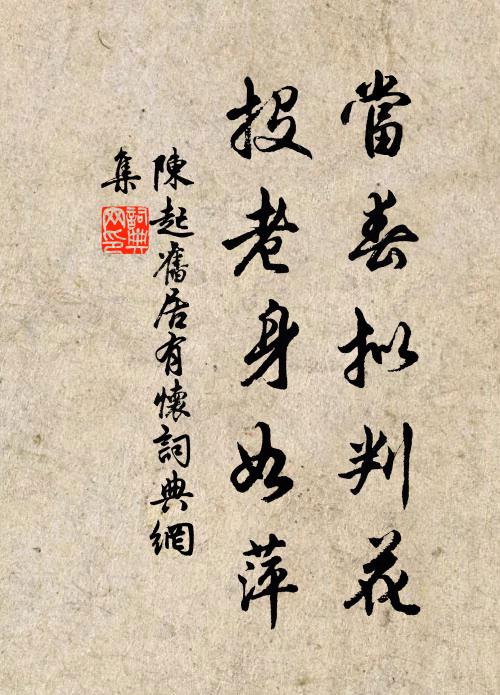 當春拟判花
投老身如萍
陳起舊居有懷詞典網
集
詞典
网印